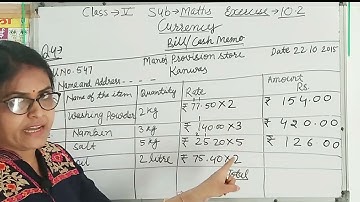 Class → V Sub → Maths Exercise → 10.2
Currency
Bill/Cash Memo
Q4→
Manoj Provision Store
Date 22.10.2015
V.No. 547
Kanwas
Name and Address - - - -
Name of the item Quantity Rate Amount
Rs.
Washing Powder 2 kg ₹ 77.50 × 2 ₹ 154.00
Namkin 3 kg ₹ 140.00 × 3 ₹ 420.00
Salt 5 kg ₹ 25.20 × 5 ₹ 126.00
2 litre ₹ 75.40 × 2
Total